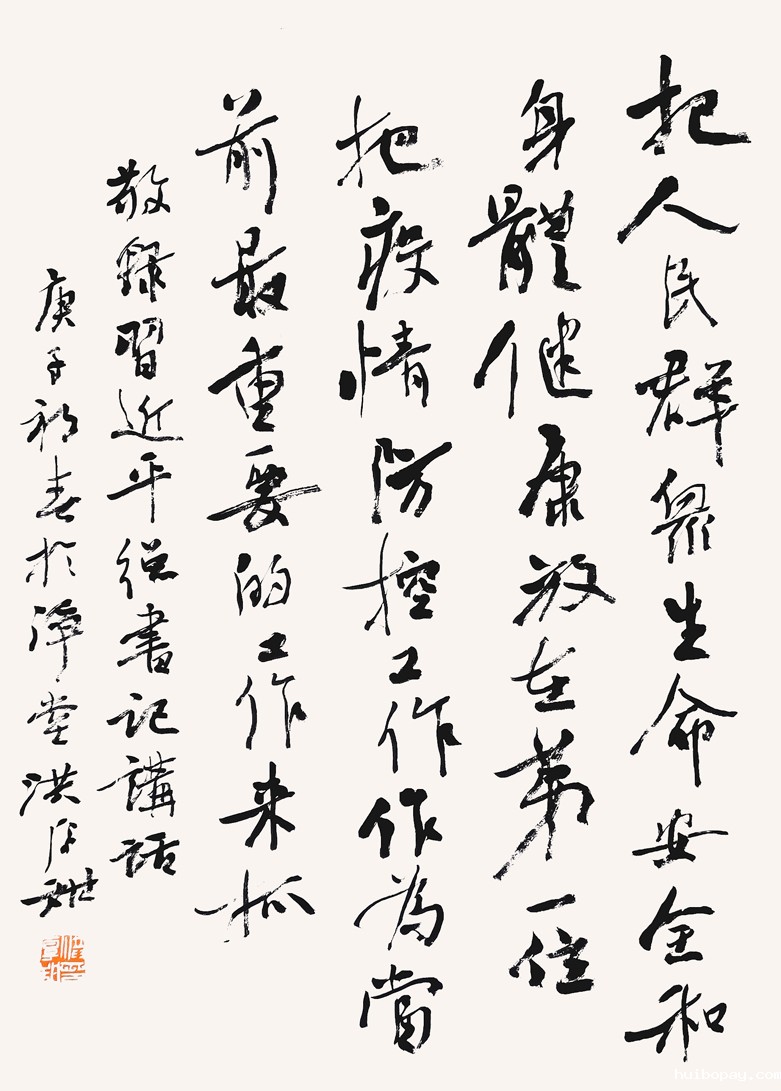 把人民群眾生命安全和
身體健康放在第一位
把疫情防控工作作為當
前最重要的工作来抓
敬錄習近平總書記講話
庚子初春於淨堂洪厚甜
huibopay.com